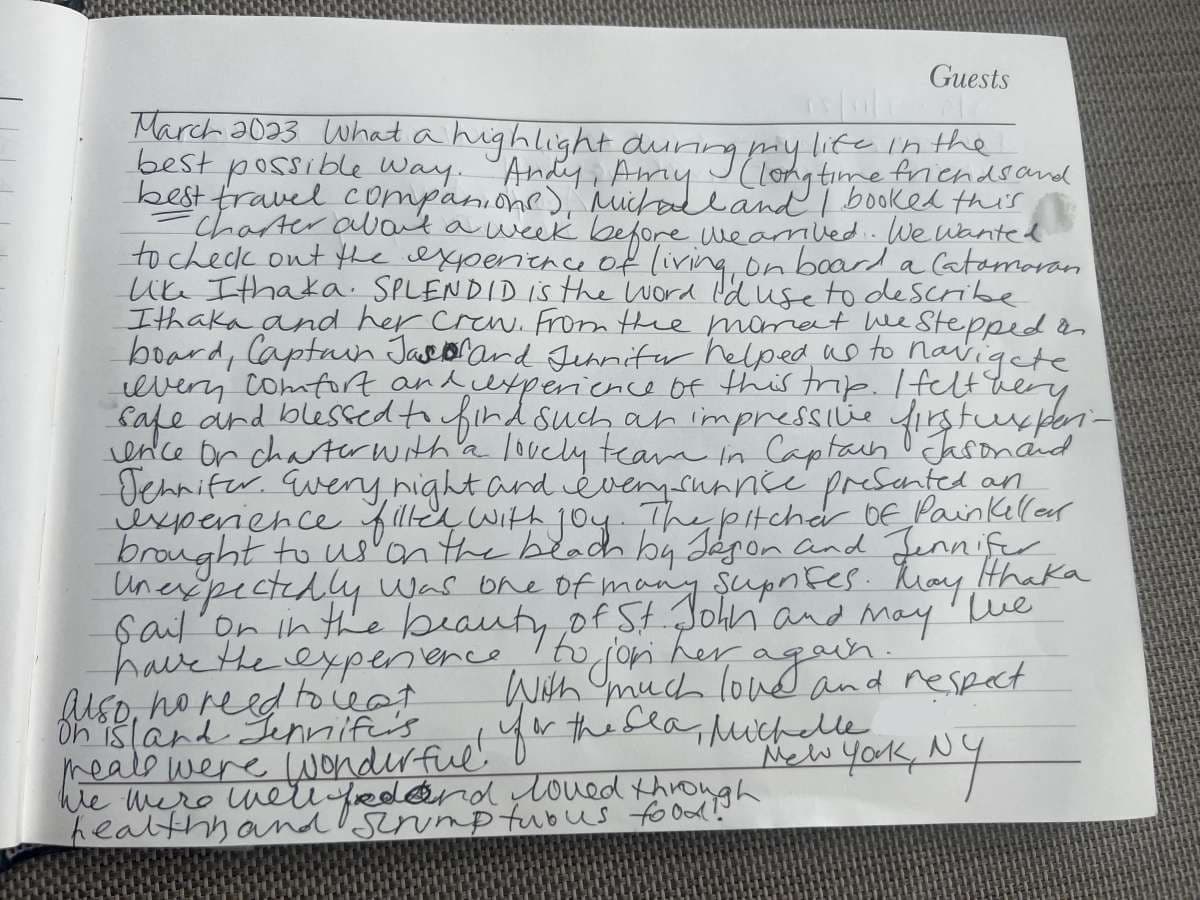 Guests
March 2023 What a highlight during my life in the
best possible way. Andy, Amy (longtime friends and
best travel companions), Michael and I booked this
charter about a week before we arrived. We wanted
to check out the experience of living on board a Catamaran
like Ithaka. SPLENDID is the word I'd use to describe
Ithaka and her crew. From the moment we stepped on
board, Captain Jason and Jennifer helped us to navigate
every comfort and experience of this trip. I felt very
safe and blessed to find such an impressive first experi-
ence on charter with a lovely team in Captain Jason and
Jennifer. Every night and every sunrise presented an
experience filled with joy. The pitcher of Painkillers
brought to us on the beach by Jason and Jennifer
unexpectedly was one of many suprises. May Ithaka
sail on in the beauty of St. John and may we
have the experience to join her again.
With much love and respect
for the Sea, Michelle
New York, NY
Also, no need to eat
on island Jennifer's
meals were wonderful!
We were well fed and loved through
healthy and scrumptuous food!